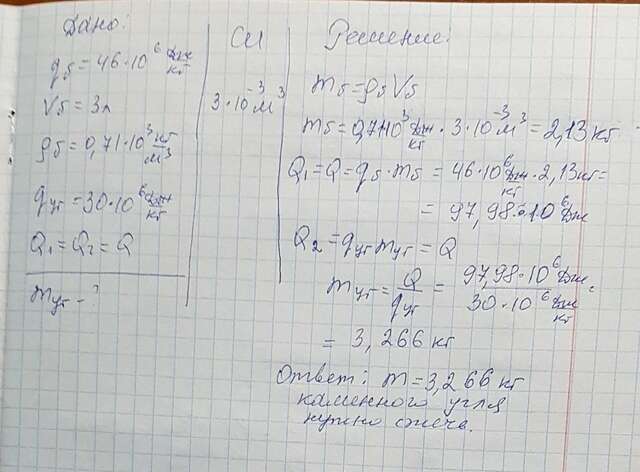 Дано:
qб = 46·10⁶ Дж/кг
Vб = 3л
ρб = 0,71·10³ кг/м³
qуг = 30·10⁶ Дж/кг
Q₁ = Q₂ = Q
mуг - ?
СИ
3·10⁻³ м³
Решение:
mб = ρб Vб
mб = 0,71·10³ Дж/кг · 3·10⁻³ м³ = 2,13 кг
Q₁ = Q = qб · mб = 46·10⁶ Дж/кг · 2,13кг =
= 97,98·10⁶ Дж
Q₂ = qуг mуг = Q
mуг = Q/qуг = 97,98·10⁶ Дж / 30·10⁶ Дж/кг =
= 3,266 кг
Ответ: m = 3,266 кг
каменного угля
нужно сжечь.